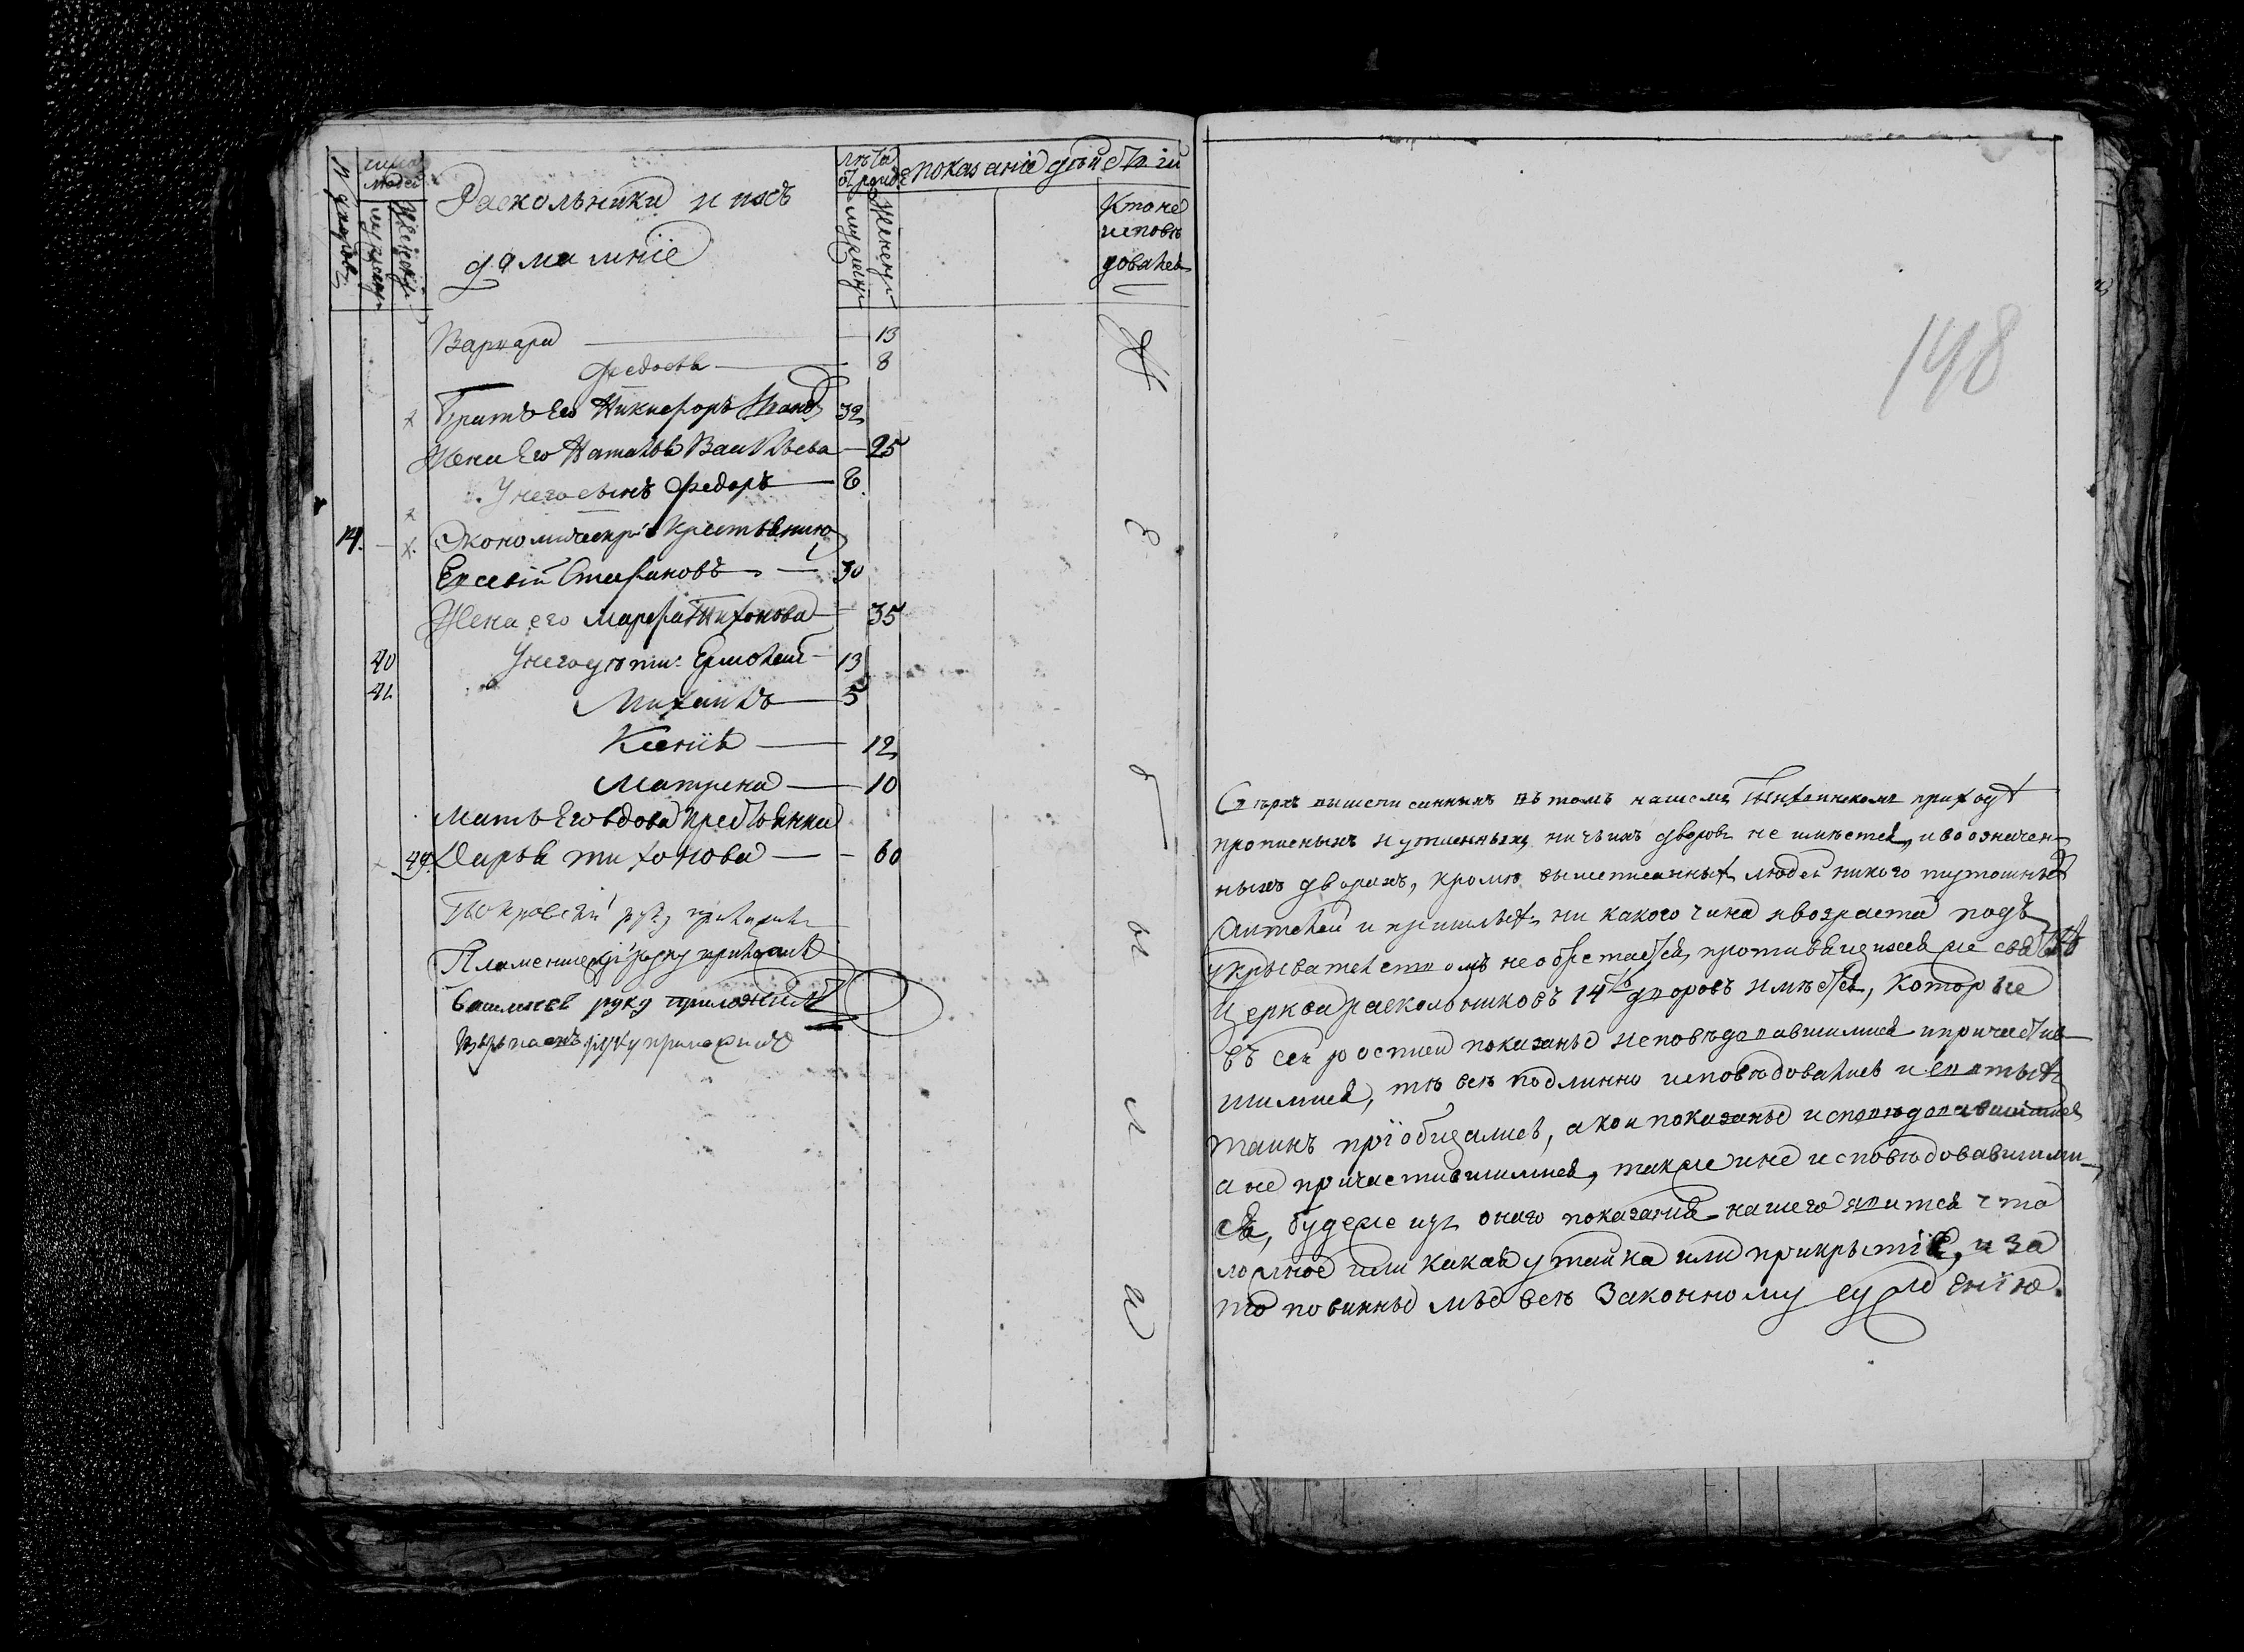 № дворовъ
число людей
мужеска
женска
Раскольники и ихъ
дамашніе
лѣта отрожде
мужеску
женску
показаніе дѣйствій
Кто не
исповѣ
довался
Варвара 13
Федосья 8
Братъ Его Никифоръ Иванов 32
Жена Его Наталья Васильева 25
У него сынъ Федоръ 6
14. Экономическій крестьянинъ
Евсевій Стефановъ 30
Жена его Марфа Тихонова 35
40 У него дѣти: Ермолай 13
41 Михаилъ 5
Ксенія 12
Матрена 10
Мать Его вдова крестьянка
44 Дарья тихонова 60
руку приложилъ
руку приложилъ
руку приложилъ
руку приложилъ
Я
з
б
ы
л
а
148
Сверхъ вышеписанныхъ въ томъ нашемъ Тихвинскомъ приходѣ
прописныхъ и утаенныхъ ничьихъ дворовъ не имѣется, и во означен
ныхъ дворахъ, кромѣ вышеписанныхъ людей никого
жителей и пришлыхъ ни какого чина и возраста подъ
укрывательствомъ не обретается, противящихся же святѣй
Церкви раскольниковъ 14ть дворовъ имѣется, которые
въ сей росписи показаны исповѣдавшимися и причастив
шимися, тѣ всѣ подлинно исповѣдовались и святыхъ
таинъ пріобщались, а кои показаны исповѣдовавшимися
а не причастившимися, также и не исповѣдовавшими
ся, буде же изъ онаго показанія нашего явится что
ложное или какая утайка или прикрытіе, и за
то повинны мы всѣ Законному сужденію.